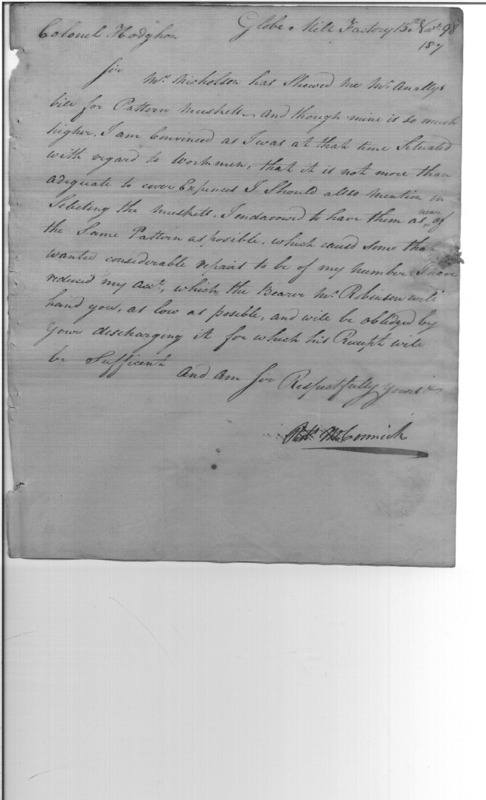 Colonel Hodgkon Globe Mill Factory 13th Novr 98
157
Sir Mr. Nicholson has Shewed me Mr. Anallys
bill for Pattern Musketts And though mine is so much
higher, I am Convinced as I was at that time Situated
with regard to Workmen, that it is not more than
adequate to cover Expences I Should allso mention in
Selecting the musketts, I indavored to have them as near of
the Same Pattern as posible, which caused Some that
wanted considerable repairs to be of my number I have
reduced my acct, which the Bearer Mr. Robinson will
hand you, as low as posible, and will be obliged by
your discharging it for which his Receipt will
be Sufficent
And am Sir Respectfully yours
Robt. McCormick